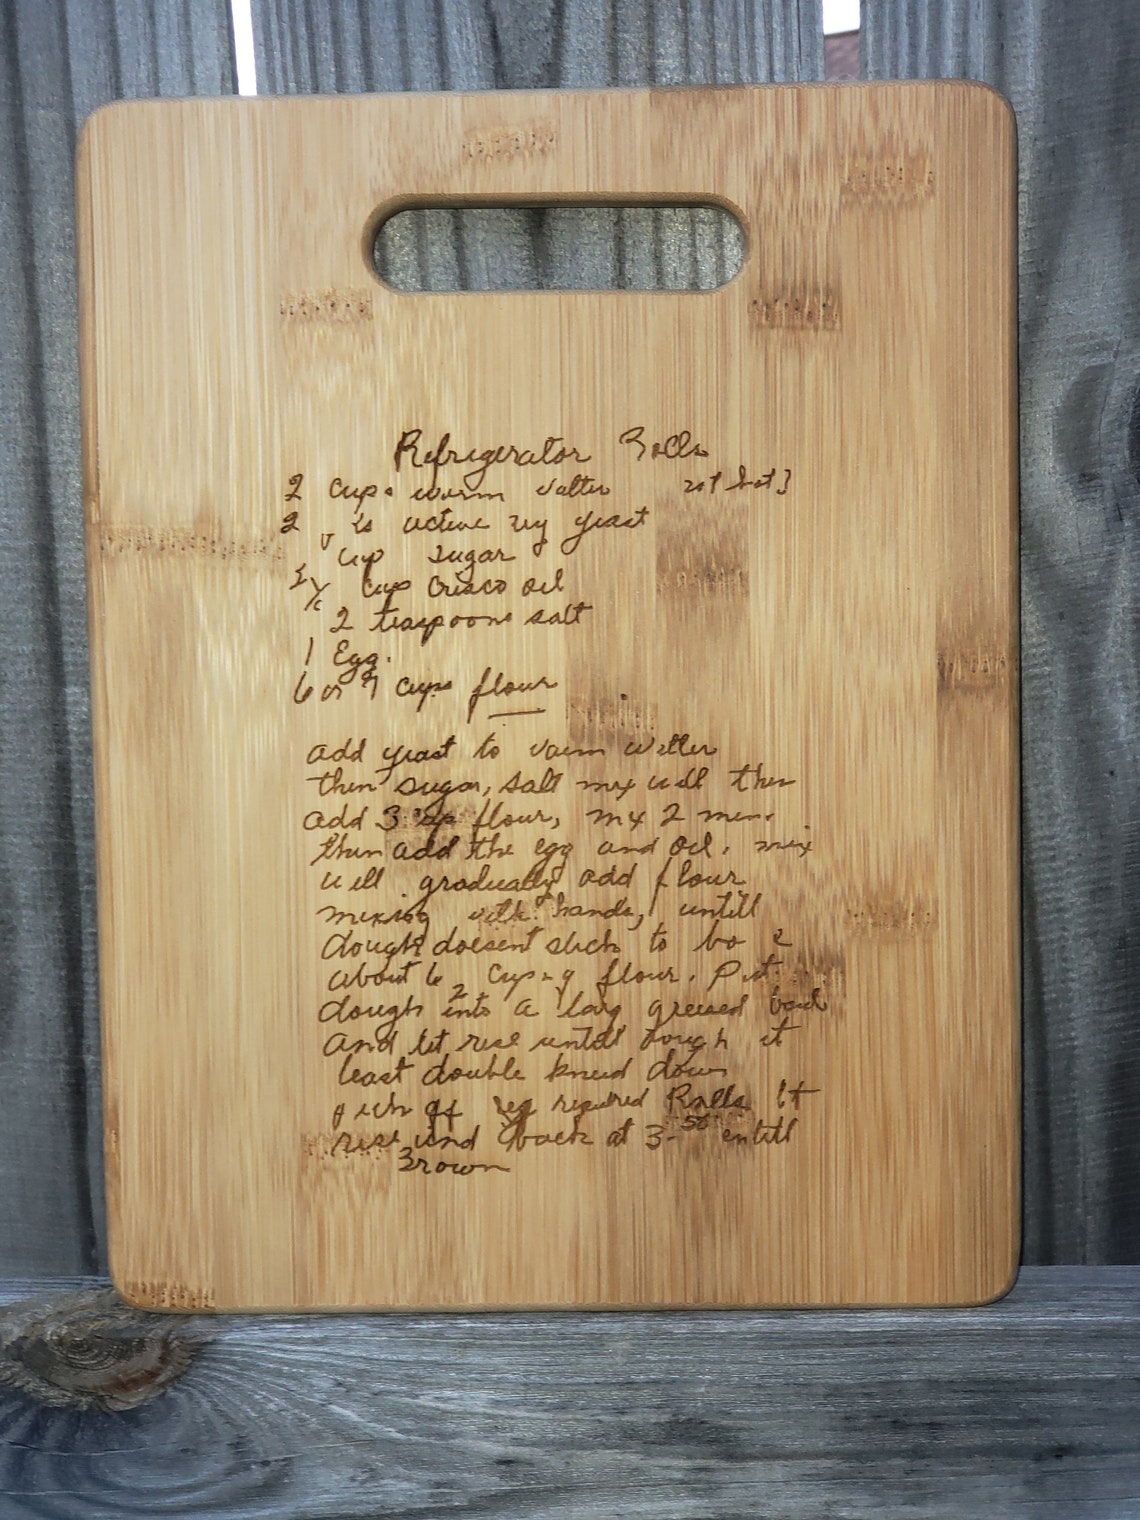 Refrigerator Rolls
2 cups warm watter not hot)
2 active dry yeast
cup sugar
cup Crisco oil
2 teaspoons salt
1 Egg.
6 or 7 cups flour
add yeast to warm watter
then sugar, salt mix well then
add 3 cup flour, mix 2 min.
then add the egg and oil. mix
well gradually add flour
mixing with hands, untill
dough doesent stick to
about 6 cups of flour. Put
dough into a larg greased bowl
and let rise untill dough
least double knead down
pich off required Rolls let
rise and back at 350 entill
Brown